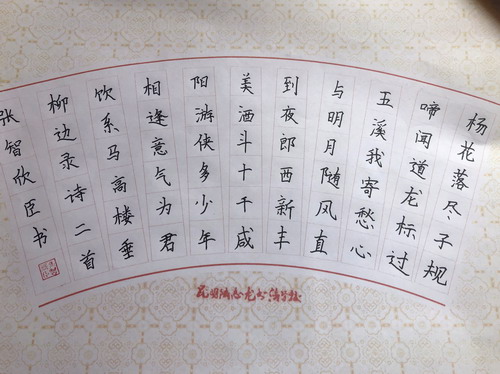 杨花落尽子规
啼闻道龙标过
五溪我寄愁心
与明月随风直
到夜郎西新丰
美酒斗十千咸
阳游侠多少年
相逢意气为君
饮系马高楼垂
柳边录诗二首
张智欣臣书